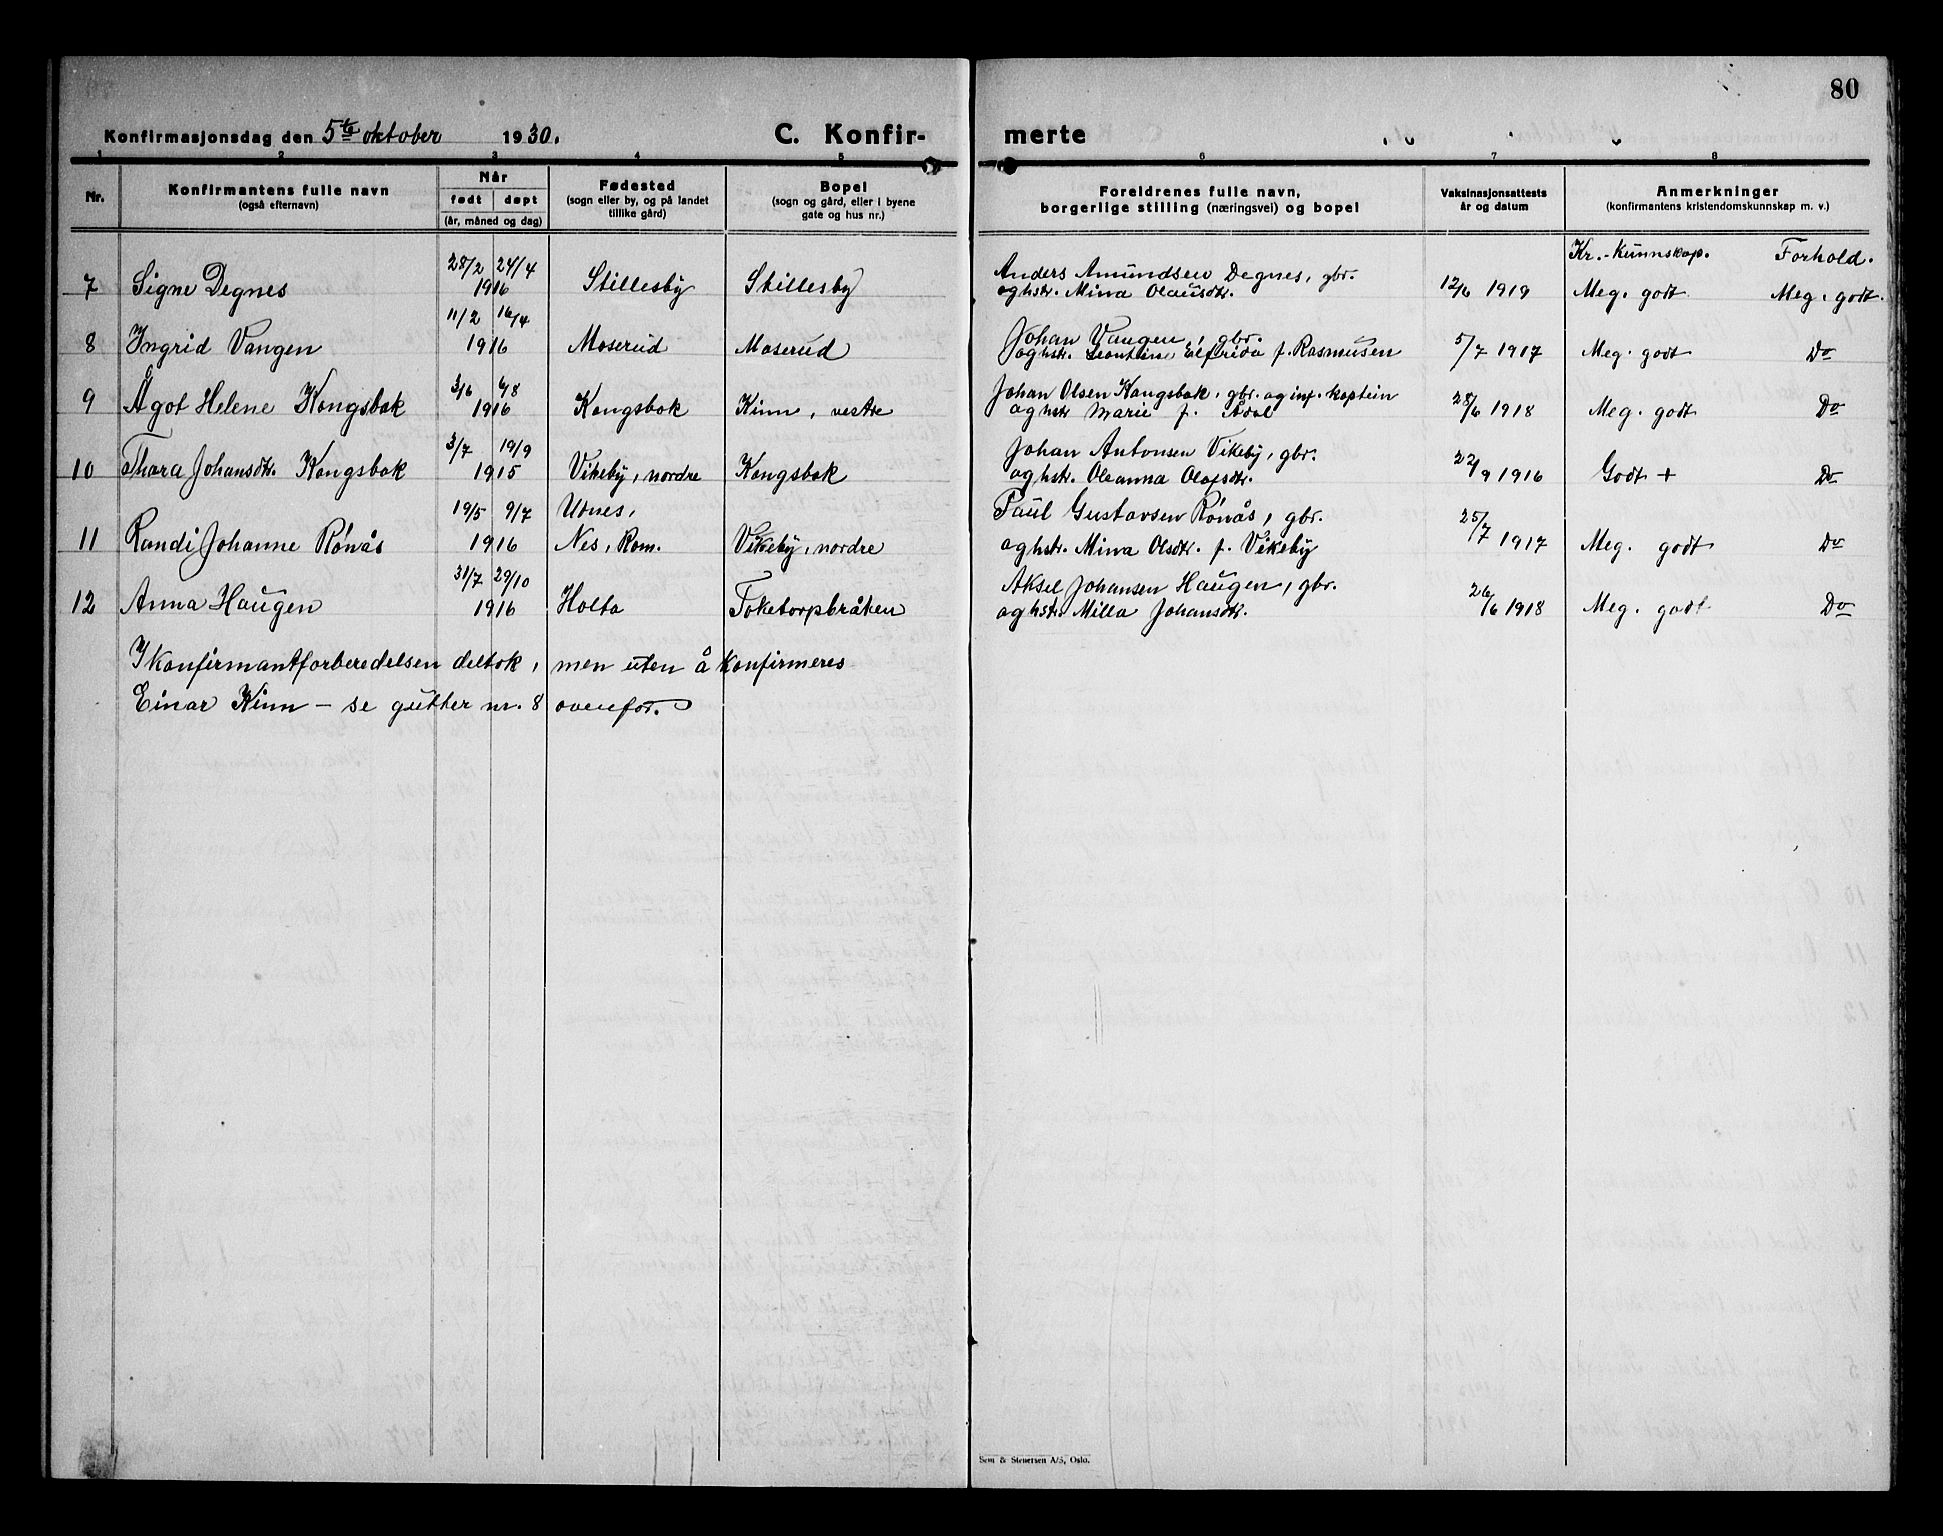 80
Konfirmasjonsdag den 5te oktober 1930.
C. Konfirmerte
1 2 3 4 5 6 7 8
Nr.
Konfirmantens fulle navn
(også efternavn)
Når
født døpt
(år, måned og dag)
Fødested
(sogn eller by, og på landet
tillike gård)
Bopel
(sogn og gård, eller i byene
gate og hus nr.)
Foreldrenes fulle navn,
borgerlige stilling (næringsvei) og bopel
Vaksinasjonsattests
år og datum
Anmerkninger
(konfirmantens kristendomskunnskap m. v.)
Kr.-kunnskap. Forhold.
28/2 24/4 Anders Amundsen Degnes, gbr.
7 Signe Degnes 1916 Stillesby Stillesby og hstr. Mina Olausdtr. 12/6 1919 Meg. godt Meg. godt.
11/2 16/4 Johan Vangen, gbr.
8 Ingrid Vangen 1916 Moserud Moserud og hstr. Leontine Elfrida f. Rasmusen 5/7 1917 Meg. godt Do
3/6 6/8 Johan Olsen Kongsbak, gbr. og inf. kaptein
9 Ågot Helene Kongsbak 1916 Kongsbak Kinn, vestre og hstr Marie f. Ådal 28/6 1918 Meg. godt Do
3/7 19/9 Johan Antonsen Vikeby, gbr.
10 Thora Johansdtr. Kongsbak 1915 Vikeby, nordre Kongsbak og hstr. Oleanna Olafsdtr. 22/9 1916 Godt + Do
19/5 9/7 Udnes, Paul Gustavsen Rønås, gbr.
11 Randi Johanne Rønås 1916 Nes, Rom. Vikeby, nordre og hstr. Mina Olsdtr. f. Vikeby 25/7 1917 Meg. godt Do
31/7 29/10 Aksel Johansen Haugen, gbr.
12 Anna Haugen 1916 Holta Toketorpbråten og hstr. Milla Johansdtr. 26/6 1918 Meg. godt Do
I konfirmantforberedelsen deltok, men uten å konfirmeres
Einar Kinn – se gutter nr. 8 ovenfor.
Sem & Stenersen A/S, Oslo.